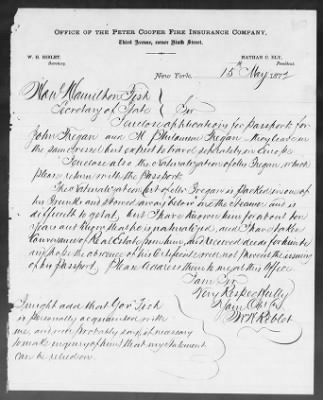 OFFICE OF THE PETER COOPER FIRE INSURANCE COMPANY,
Third Avenue, corner Ninth Street.
W. H. RIBLET, Secretary.
NATHAN C. ELY, President.
New York, 15th May 1872
Hon Hamilton Fish
Secretary of State
Sir
I enclose applications for Passports for
John Fregan and M Philamene Fregan They leave in
the same vessel but expect to travel separately in Europe
I enclose also the Naturalization of Mrs Fregan, which
please return with the Passport.
The Naturalization Cert of Mr Fregan is packed in one of
his trunks and stowed away below in the steamer and is
difficult to get at, but I have known him for about ten
years and know that he is naturalized, and I have taken
Conveyance of Real Estate from him, and received deeds from him
and hope the absence of his Certificate will not prevent the issuing
of his passport. Please address them to me at this Office
I am Sir
Very Respectfully
Your Obt Svt
W H Riblet
I might add that Gov Fish
is personally acquainted with
me, and will probably say, if necessary
to make inquiry of him that my statement
can be relied on.